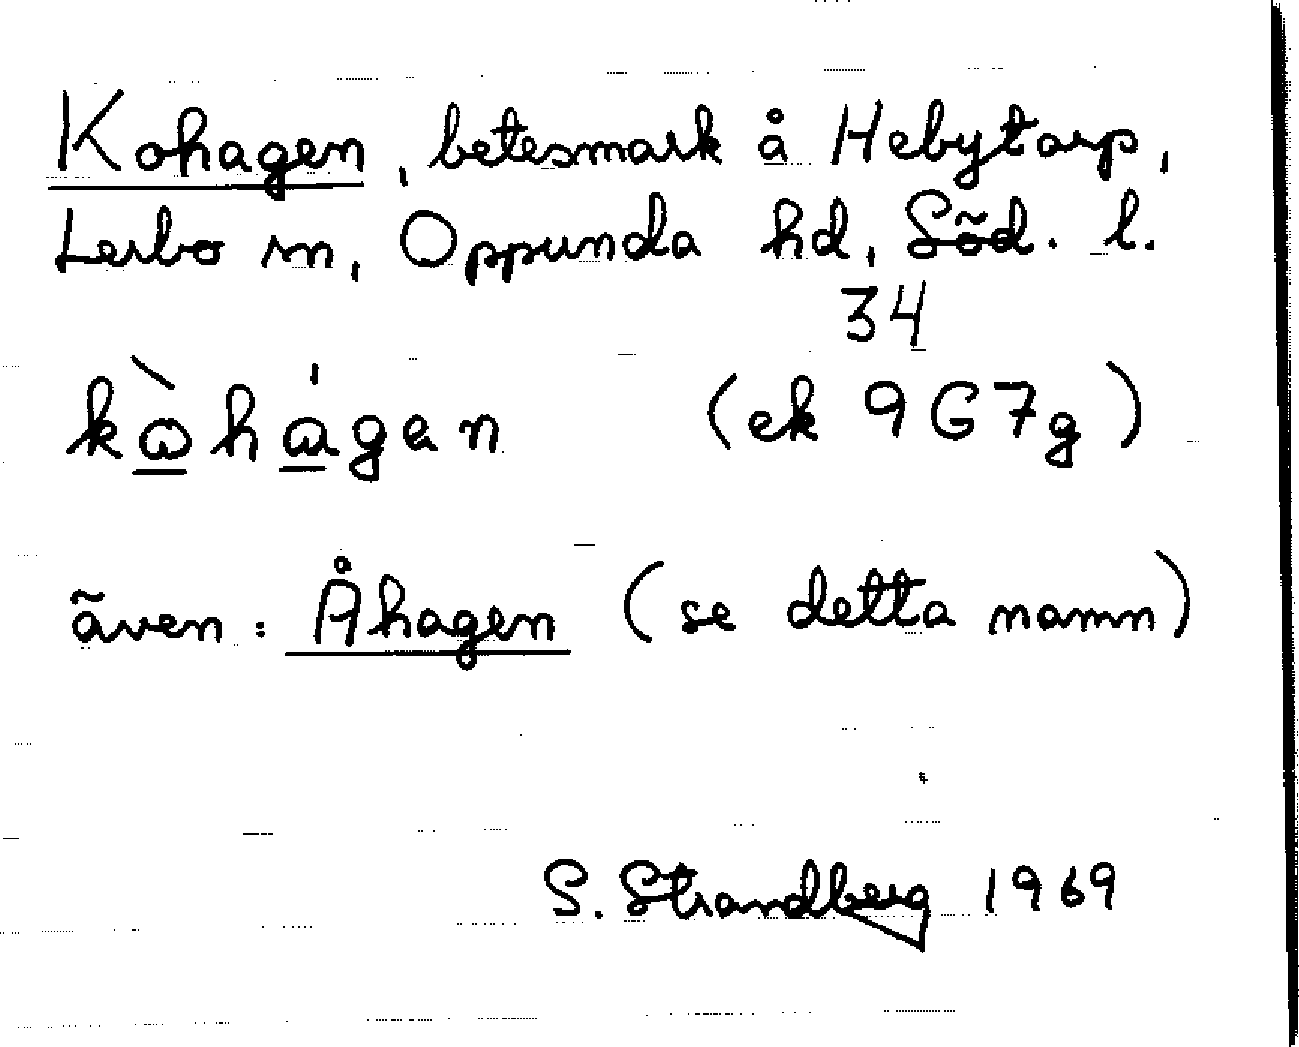 Kohagen, betesmark å Hebytorp,
Lerbo sn, Oppunda hd, Söd. l.
34
kòhágen (ek 9G7g)
även: Åhagen (se detta namn)
S. Strandberg 1969